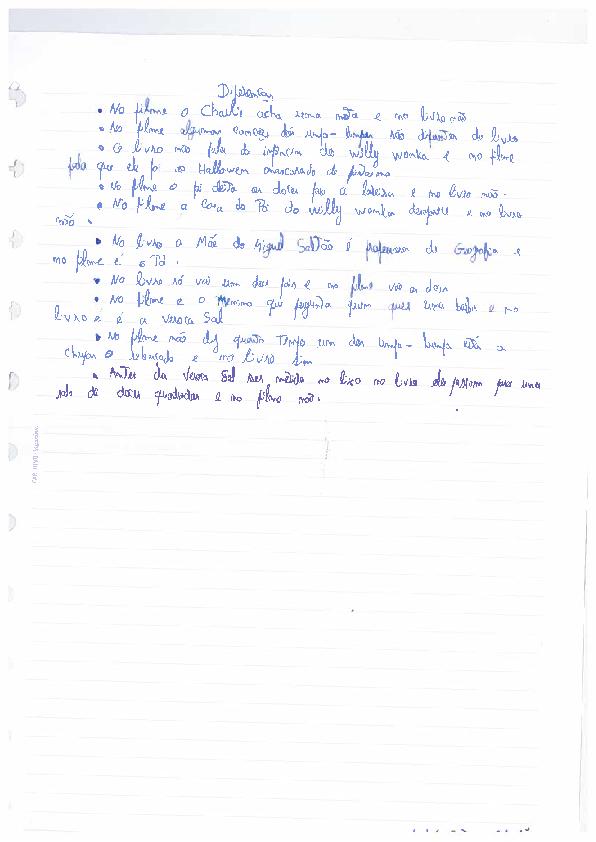 Diferenças
• No filme o Charlie acha uma nota e no livro não
• No filme algumas canções dos umpa-lumpas são diferentes do livro
• O livro não fala da infância do willy wonka e no filme
fala que ele foi ao Halloween mascarado de
• No filme o pai deita os doces para a lareira e no livro não.
• No filme a casa do Pai do willy wonka e no livro
não.
• No livro a Mãe do Miguel Saltão é professora de Geografia e
no filme é o Pai.
• No livro só vai um dos pais e no filme vão os dois
• No filme é o menino que pergunta quem quer uma e no
livro é a Veroca Sal
• No filme não diz quanto Tempo um dos umpa-lumpa está a
chupar o rebuçado e no livro sim
• Antes da Veroca Sal ser metida no lixo no livro eles passam por uma
sala de doces quadrados e no filme não.